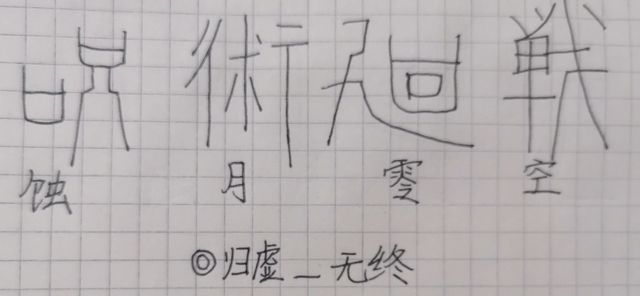 呪術廻戦
蚀月零空
◎归虚_无终